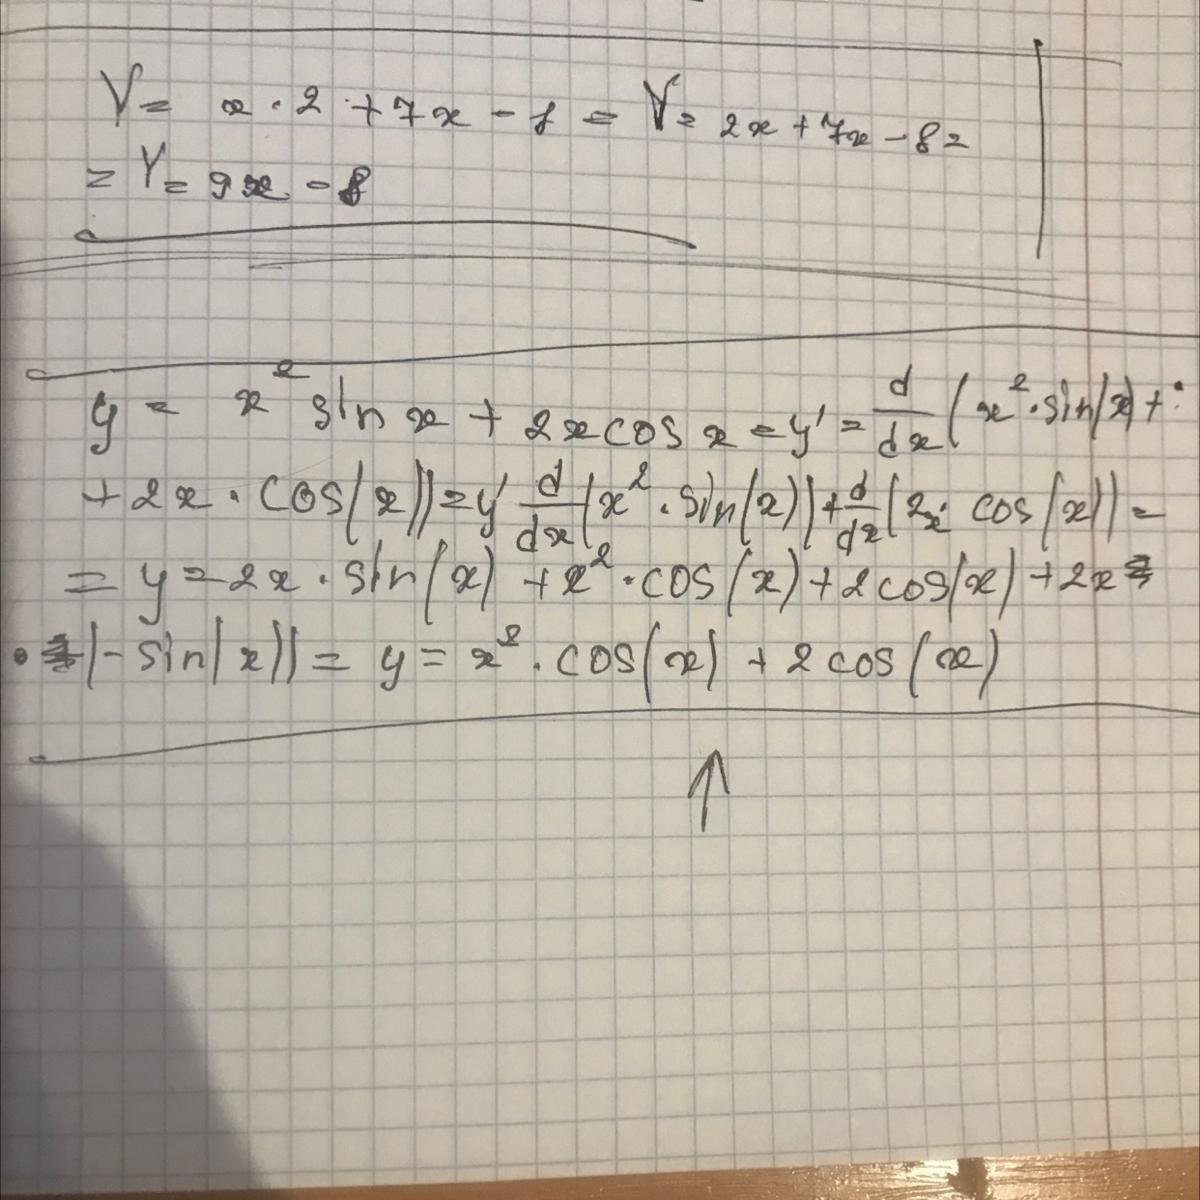 Y = x · 2 + 7x - 8 = Y = 2x + 7x - 8 =
= Y = 9x - 8
y = x² sin x + 2x cos x = y' = d/dx (x² · sin(x) +
+ 2x · cos(x)) = y' d/dx (x² · sin(x)) + d/dx (2x · cos(x)) =
= y = 2x · sin(x) + x² · cos(x) + 2cos(x) + 2x
· (- sin(x)) = y = x² · cos(x) + 2 cos(x)